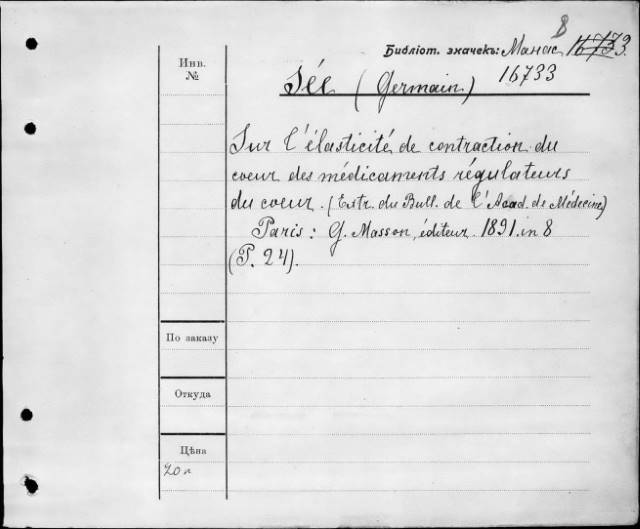 8
Библіот. значекъ: Манас
16733
Инв.
№
Sée (Germain)
Sur l'élasticité de contraction du
coeur des médicaments régulateurs
du coeur. (Extr. du Bull. de l'Acad. de Médecine)
Paris: G. Masson, éditeur. 1891. in 8
(P. 24).
По заказу
Откуда
Цѣна